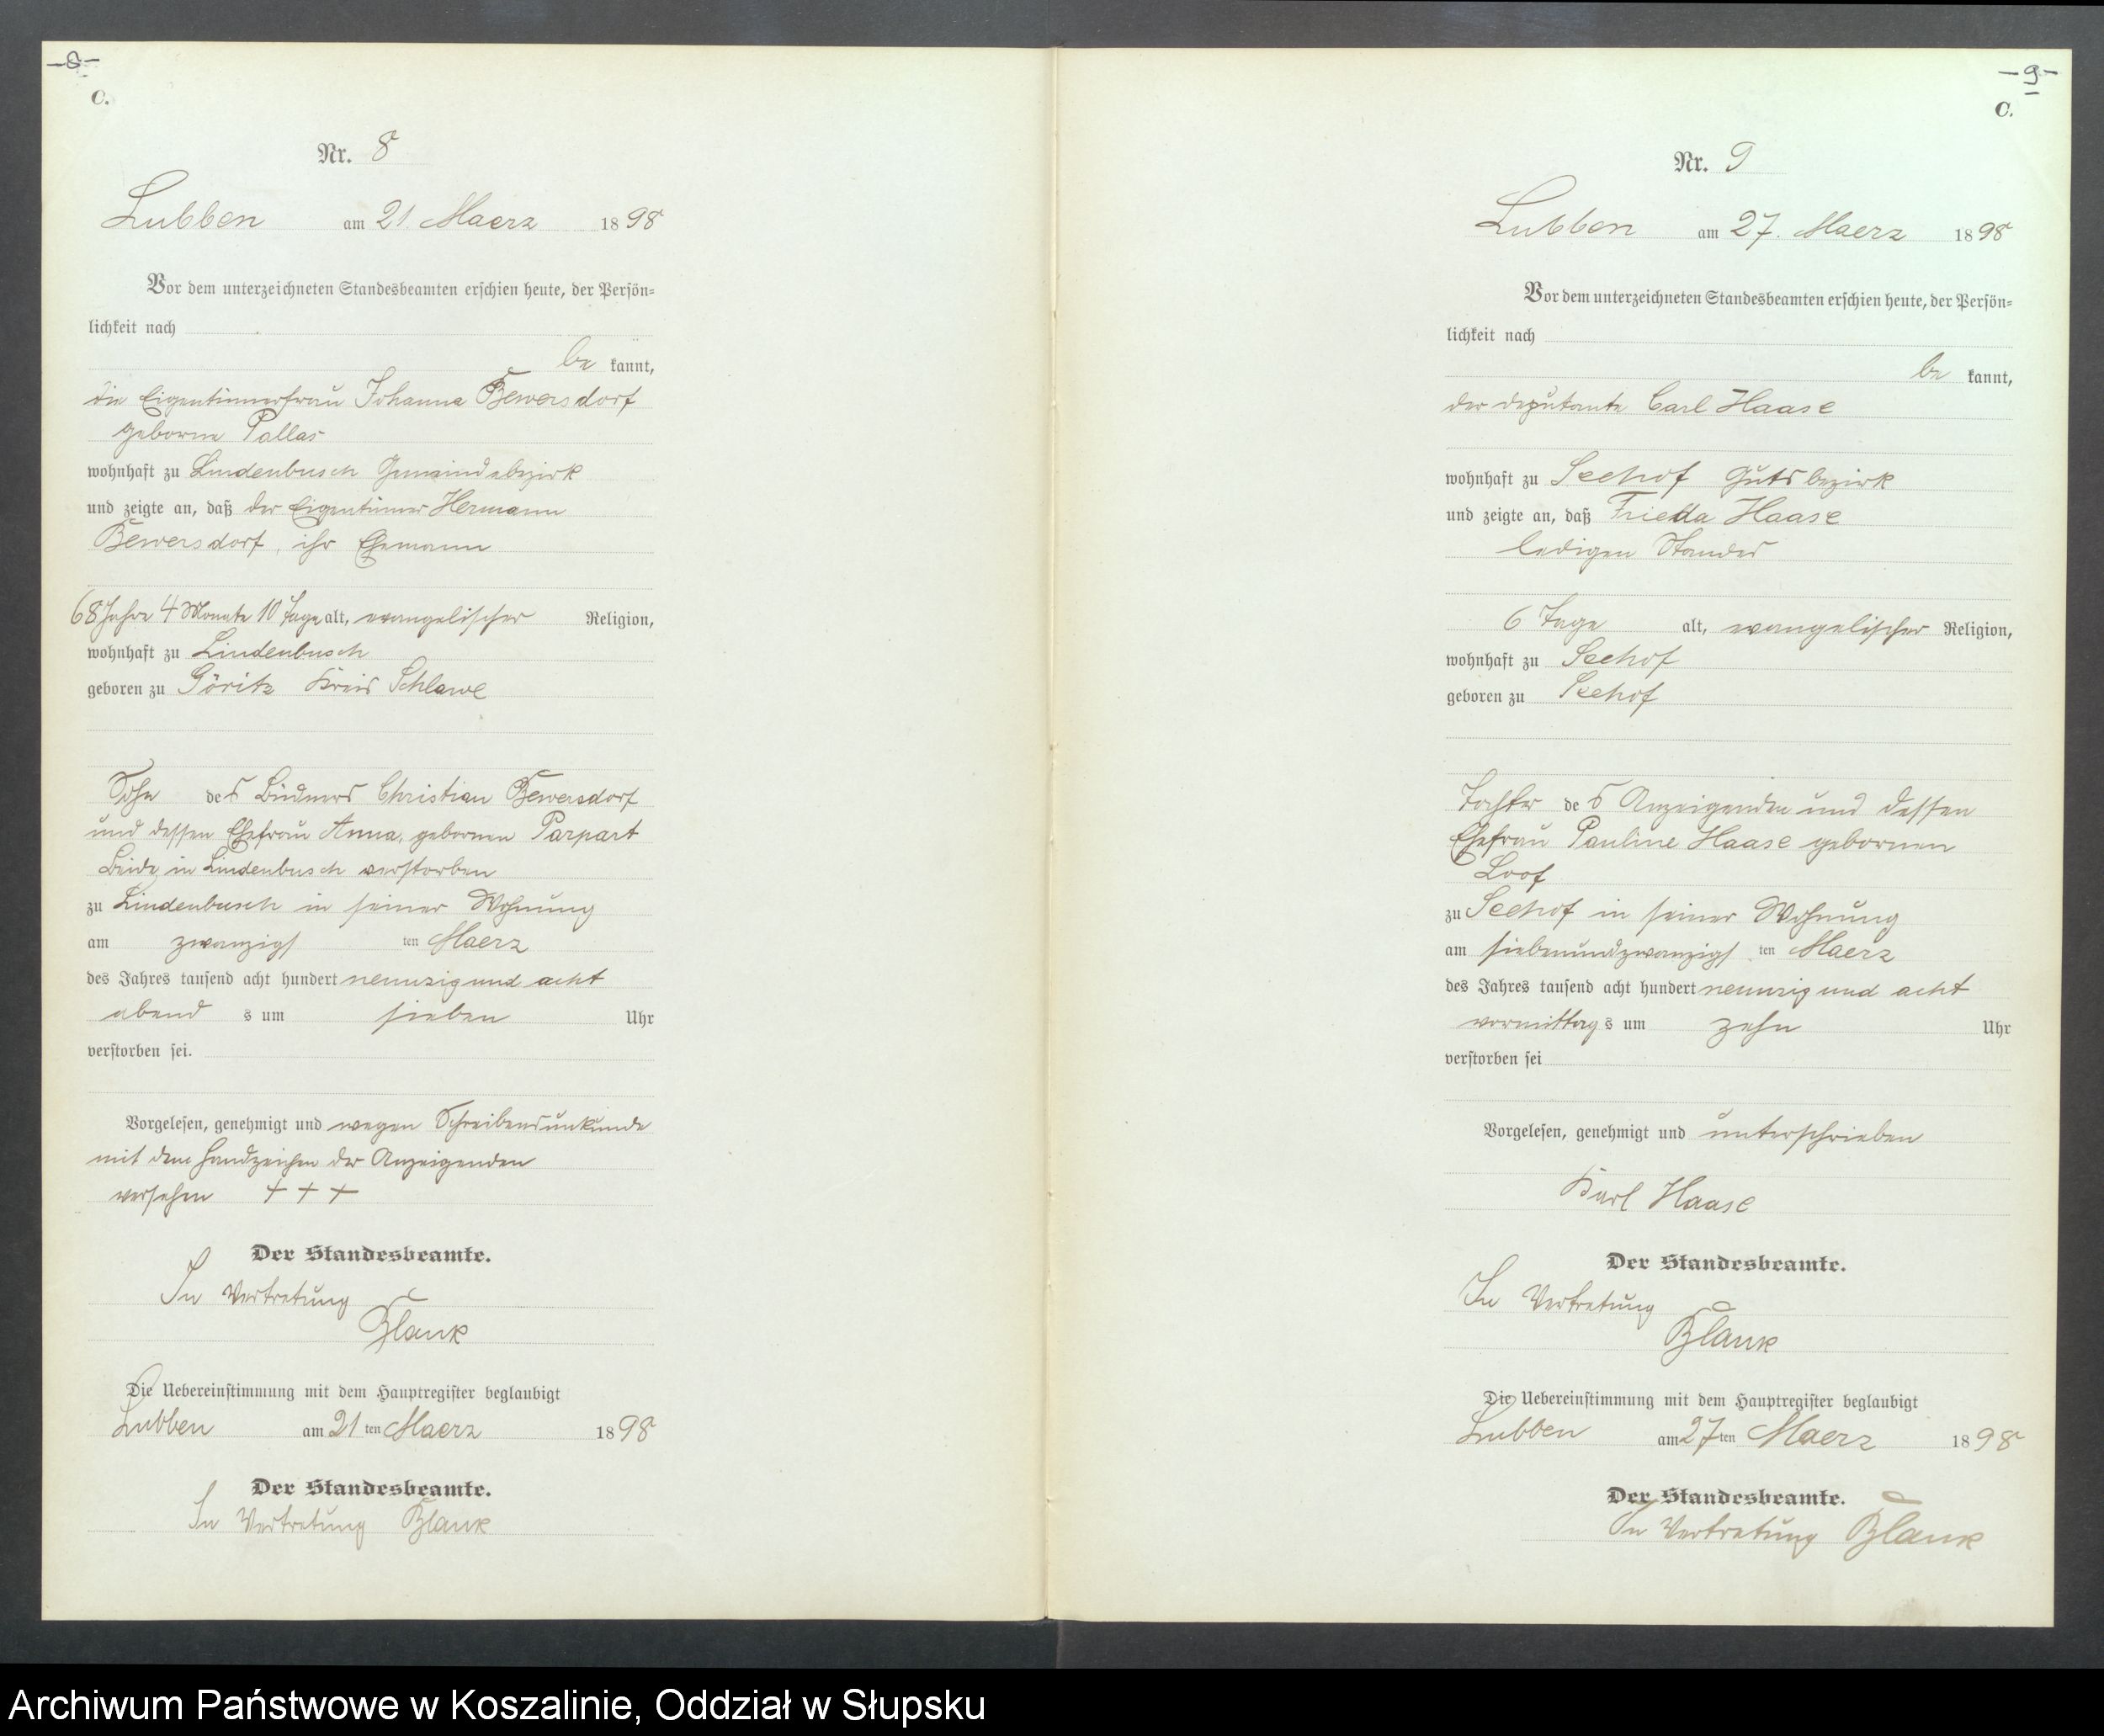 -8-
C.
Nr. 8
Lubben am 21. Maerz 1898
Vor dem unterzeichneten Standesbeamten erschien heute, der Persön=
lichkeit nach
be kannt,
die Eigentümerfrau Johanna Bewersdorf
geborne Pallas
wohnhaft zu Lindenbusch Gemeindebezirk
und zeigte an, daß der Eigentümer Hermann
Bewersdorf, ihr Ehemann
68 Jahre 4 Monate 10 Tage alt, evangelischer Religion,
wohnhaft zu Lindenbusch
geboren zu Göritz Kreis Schlawe
Sohn des Büdners Christian Bewersdorf
und dessen Ehefrau Anna, gebornen Parpart
Beide in Lindenbusch verstorben
zu Lindenbusch in seiner Wohnung
am zwanzigsten Maerz
des Jahres tausend acht hundert neunzig und acht
abend s um sieben Uhr
verstorben sei.
Vorgelesen, genehmigt und wegen Schreibensunkunde
mit dem Handzeichen der Anzeigenden
versehen + + +
Der Standesbeamte.
In Vertretung
Blank
Die Uebereinstimmung mit dem Hauptregister beglaubigt
Lubben am 21ten Maerz 1898
Der Standesbeamte.
In Vertretung Blank
-9-
C.
Nr. 9
Lubben am 27. Maerz 1898
Vor dem unterzeichneten Standesbeamten erschien heute, der Persön=
lichkeit nach
be kannt,
der deputante Carl Haase
wohnhaft zu Seehof Gutsbezirk
und zeigte an, daß Frieda Haase
ledigen Standes
6 Tage alt, evangelischer Religion,
wohnhaft zu Seehof
geboren zu Seehof
Tochter des Anzeigenden und dessen
Ehefrau Pauline Haase gebornen
Loof
zu Seehof in seiner Wohnung
am siebenundzwanzigsten Maerz
des Jahres tausend acht hundert neunzig und acht
vormittag s um zehn Uhr
verstorben sei
Vorgelesen, genehmigt und unterschrieben
Karl Haase
Der Standesbeamte.
In Vertretung
Blank
Die Uebereinstimmung mit dem Hauptregister beglaubigt
Lubben am 27ten Maerz 1898
Der Standesbeamte.
In Vertretung Blank
Archiwum Państwowe w Koszalinie, Oddział w Słupsku